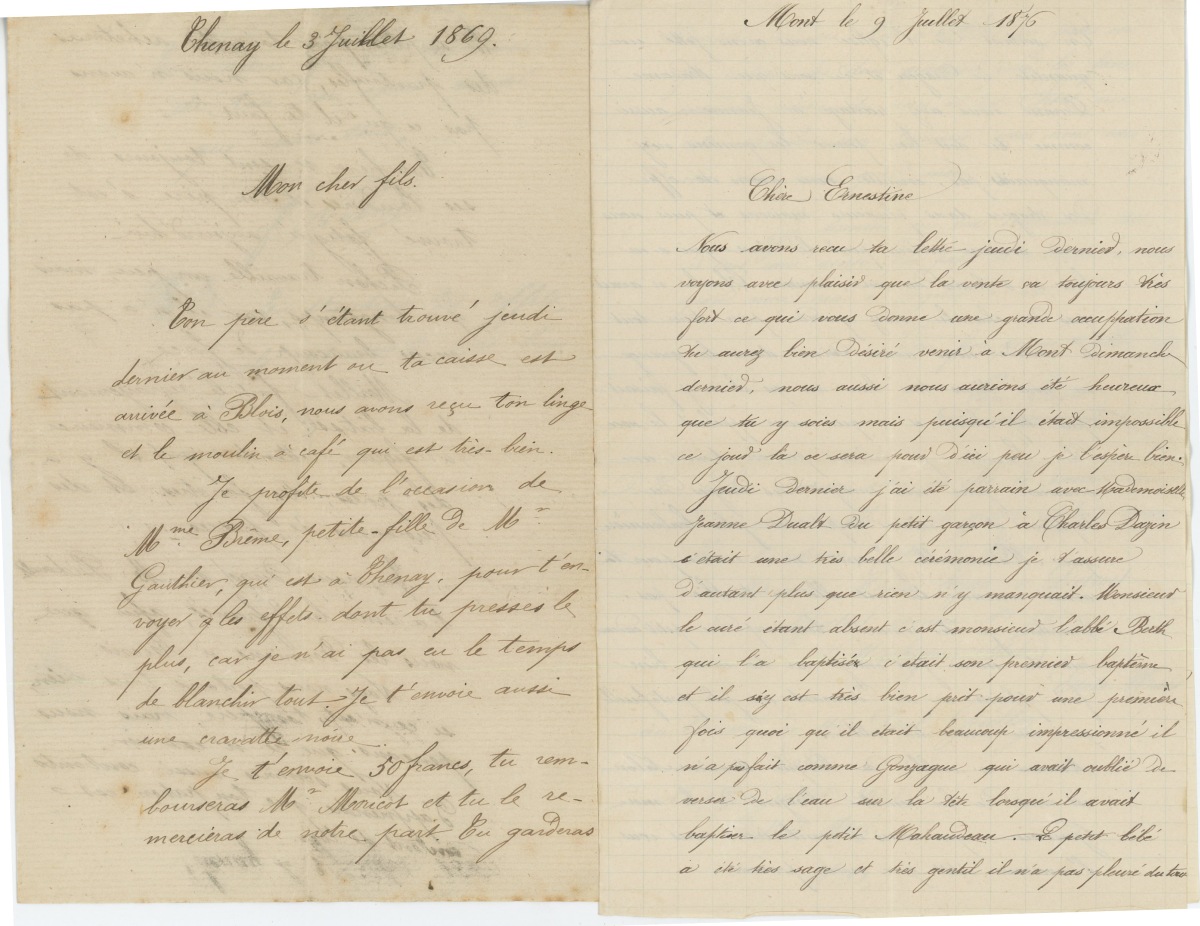 Thenay le 3 Juillet 1869.
Mon cher fils.
Ton père s'étant trouvé jeudi
dernier au moment ou ta caisse est
arrivée à Blois, nous avons reçu ton linge
et le moulin à café qui est très-bien.
Je profite de l'occasion de
Mme Brême, petite-fille de Mr
Gauthier, qui est à Thenay, pour t'en-
voyer les effets dont tu presses le
plus, car je n'ai pas eu le temps
de blanchir tout. Je t'envoie aussi
une cravatte noire
Je t'envoie 50 francs, tu rem-
bourseras Mr Moricot et tu le re-
mercieras de notre part. Tu garderas
Mont le 9 Juillet 1876
Chère Ernestine
Nous avons recu ta lettre jeudi dernier, nous
voyons avec plaisir que la vente va toujours très
fort ce qui vous donne une grande occuppation
tu aurez bien désiré venir à Mont dimanche
dernier, nous aussi nous aurions été heureux
que tu y soies mais puisqu'il était impossible
ce jour la ce sera pour d'ici peu je l'espère bien.
Jeudi dernier j'ai été parrain avec Mademoiselle
Jeanne Dualt du petit garçon à Charles Dazin
c'était une très belle cérémonie je t'assure
d'autant plus que rien n'y manquait. Monsieur
le curé étant absent c'est monsieur l'abbé Berth
qui l'a baptisér c'était son premier baptême
et il s'y est très bien prit pour une première
fois quoi qu'il était beaucoup impressionné il
n'a pas fait comme Gonzague qui avait oublié de
verser de l'eau sur la tête lorsqu'il avait
baptiser le petit Mahaudeau. Le petit bébé
à été très sage et très gentil il n'a pas pleuré du tout